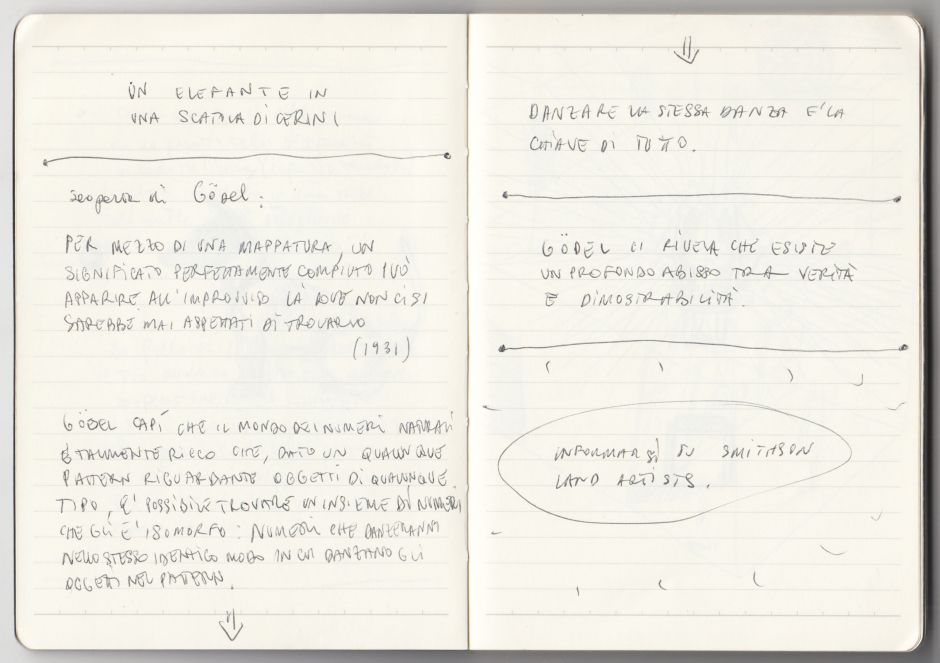 UN ELEFANTE IN
UNA SCATOLA DI CERINI
scoperta di Gödel:
PER MEZZO DI UNA MAPPATURA, UN
SIGNIFICATO PERFETTAMENTE COMPIUTO PUÒ
APPARIRE ALL'IMPROVVISO LÀ DOVE NON CI SI
SAREBBE MAI ASPETTATI DI TROVARLO
(1931)
GÖDEL CAPÌ CHE IL MONDO DEI NUMERI NATURALI
È TALMENTE RICCO CHE, DATO UN QUALUNQUE
PATTERN RIGUARDANTE OGGETTI DI QUALUNQUE
TIPO, È POSSIBILE TROVARE UN INSIEME DI NUMERI
CHE GLI E' ISOMORFO: NUMERI CHE DANZERANNO
NELLO STESSO IDENTICO MODO IN CUI DANZANO GLI
OGGETTI NEL PATTERN.
DANZARE LA STESSA DANZA E' LA
CHIAVE DI TUTTO.
GÖDEL CI RIVELA CHE ESISTE
UN PROFONDO ABISSO TRA VERITÀ
E DIMOSTRABILITÀ.
INFORMARSI SU SMITHSON
LAND ARTISTS.